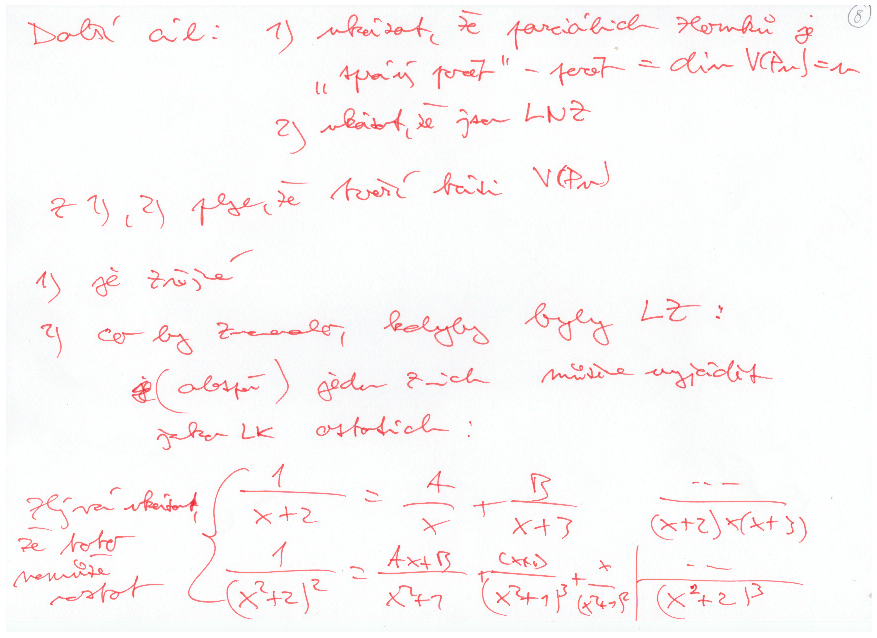 8
Další cíl: 1) ukázat, že parciálních zlomků je
"správný počet" - počet = dim V(Pn) = n
2) ukázat, že jsou LNZ
z 1), 2) plyne, že tvoří bázi V(Pn)
1) je zřejmé
2) co by znamenalo, kdyby byly LZ:
(alespoň) jeden z nich můžeme vyjádřit
jako LK ostatních:
zbývá ukázat, že toto nemůže nastat
1/(x+2) = A/x + B/(x+3) ---/((x+2)x(x+3))
1/(x²+2)² = (Ax+B)/(x²+1) + /(x²+1)³ + | --/(x²+2)³